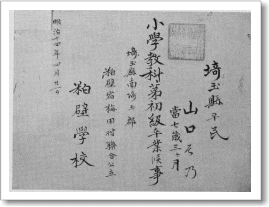 埼玉縣平民
山口その
當七歳三ヶ月
小學教科第初級卒業候事
埼玉縣南埼玉郡
粕壁宿梅田村聯合公立
粕壁學校
明治十四年四月廿一日